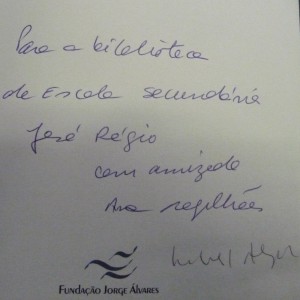 Para a biblioteca
da Escola Secundária
José Régio
com amizade
Ana
FUNDAÇÃO JORGE ÁLVARES